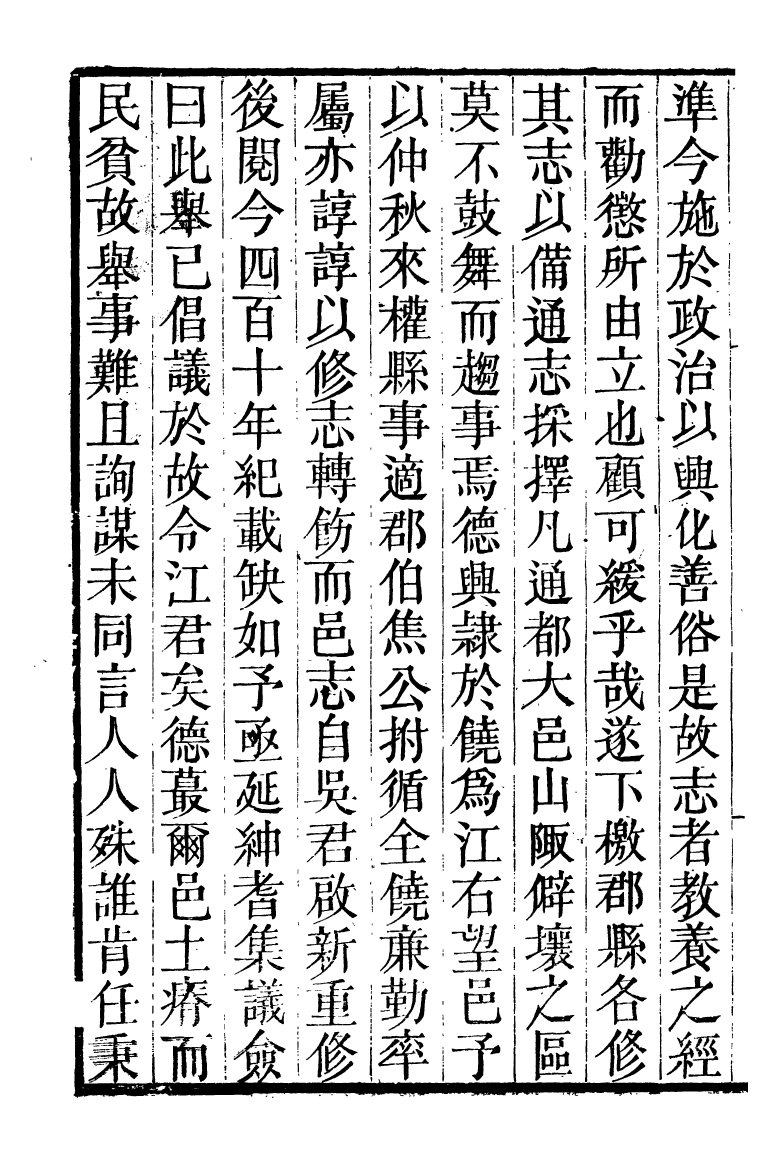 準今施於政治以興化善俗是故志者教養之經
而勸懲所由立也顧可緩乎哉遂下檄郡縣各修
其志以備通志採擇凡通都大邑山陬僻壤之區
莫不鼓舞而趨事焉德興隷於饒爲江右望邑予
以仲秋來權縣事適郡伯焦公拊循全饒亷勤率
屬亦諄諄以修志轉飭而邑志自吳君啟新重修
後閱今四百十年紀載缺如予亟延紳耆集議僉
曰此舉已倡議於故令江君矣德蕞爾邑土瘠而
民貧故舉事難且詢謀未同言人人殊誰肯任秉